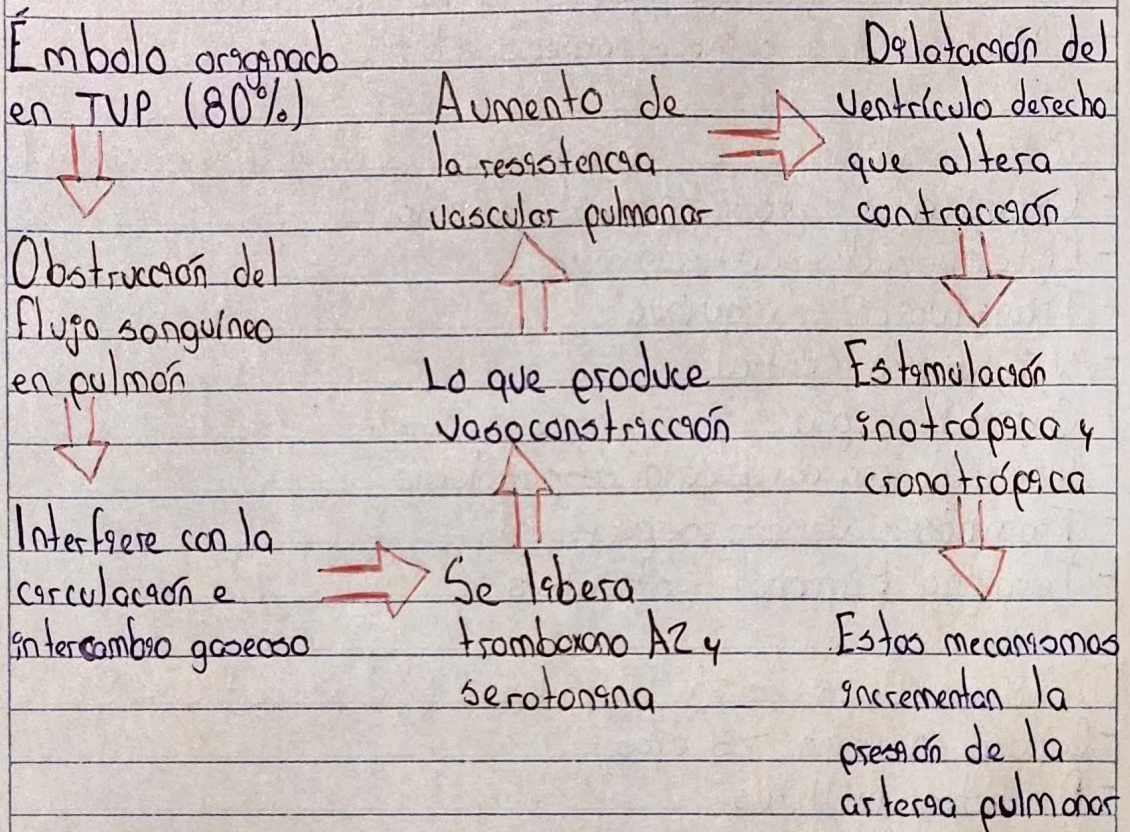 Émbolo originado
en TVP (80%)
Obstrucción del
flujo sanguíneo
en pulmón
Interfiere con la
circulación e
intercambio gaseoso
Se libera
tromboxano A2 y
serotonina
Lo que produce
vasoconstricción
Aumento de
la resistencia
vascular pulmonar
Dilatación del
ventrículo derecho
que altera
contracción
Estimulación
inotrópica y
cronotrópica
Estos mecanismos
incrementan la
presión de la
arteria pulmonar